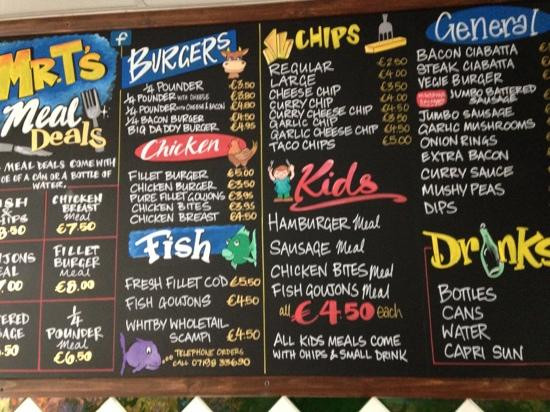 MR.T'S
Meal
DEALS
MEAL DEALS COME WITH
OF A CAN OR A BOTTLE OF
WATER.
CHICKEN
BREAST
Meal
€7.50
FILLET
BURGER
meal
€8.00
1/4
POUNDER
Meal
€6.50
f
BURGERS
1/4 POUNDER €3.50
1/4 POUNDER WITH CHEESE
1/4 POUNDER WITH CHEESE & BACON
1/4 BACON BURGER
BIG DADDY BURGER €4.95
Chicken
FILLET BURGER €5.00
CHICKEN BURGER €3.50
PURE FILLET GOUJONS €3.95
CHICKEN BITES €3.95
CHICKEN BREAST €4.50
Fish
FRESH FILLET COD €5.50
FISH GOUJONS €4.50
WHITBY WHOLETAIL
SCAMPI €4.50
TELEPHONE ORDERS
CALL
CHIPS
REGULAR €2.50
LARGE €4.00
CHEESE CHIP €3.50
CURRY CHIP
CURRY CHEESE CHIP
GARLIC CHIP
GARLIC CHEESE CHIP
TACO CHIPS €5.00
Kids
HAMBURGER Meal
SAUSAGE Meal
CHICKEN BITES Meal
FISH GOUJONS Meal
all €4.50 each
ALL KIDS MEALS COME
WITH CHIPS & SMALL DRINK
General
BACON CIABATTA
STEAK CIABATTA
VEGIE BURGER
JUMBO BATTERED
SAUSAGE
JUMBO SAUSAGE
GARLIC MUSHROOMS
ONION RINGS
EXTRA BACON
CURRY SAUCE
MUSHY PEAS
DIPS
Drinks
BOTTLES
CANS
WATER
CAPRI SUN